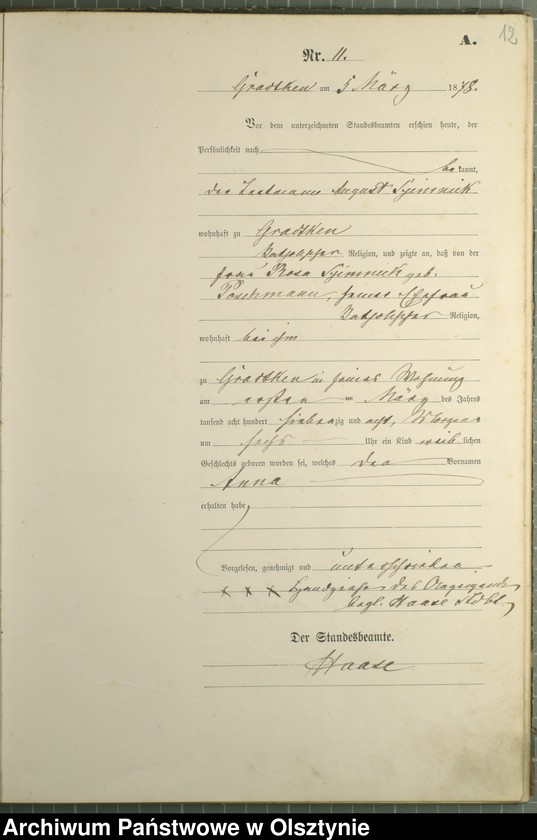 12
A.
Nr. 11.
Gradtken am 5 März 1878.
Vor dem unterzeichneten Standesbeamten erschien heute, der
Persönlichkeit nach
bekannt,
der Instmann August
wohnhaft zu Gradtken
katholischer Religion, und zeigte an, daß von der
Frau Rosa geb.
Poschmann, seiner Ehefrau
katholischer Religion,
wohnhaft bei ihm
zu Gradtken in seiner Wohnung
am ersten März des Jahres
tausend acht hundert siebenzig und acht, Morgens
um sechs Uhr ein Kind weiblichen
Geschlechts geboren worden sei, welches den Vornamen
Anna
erhalten habe
Vorgelesen, genehmigt und unterschrieben
x x x Handzeichen des
begl. Haase
Der Standesbeamte.
Haase
Archiwum Państwowe w Olsztynie